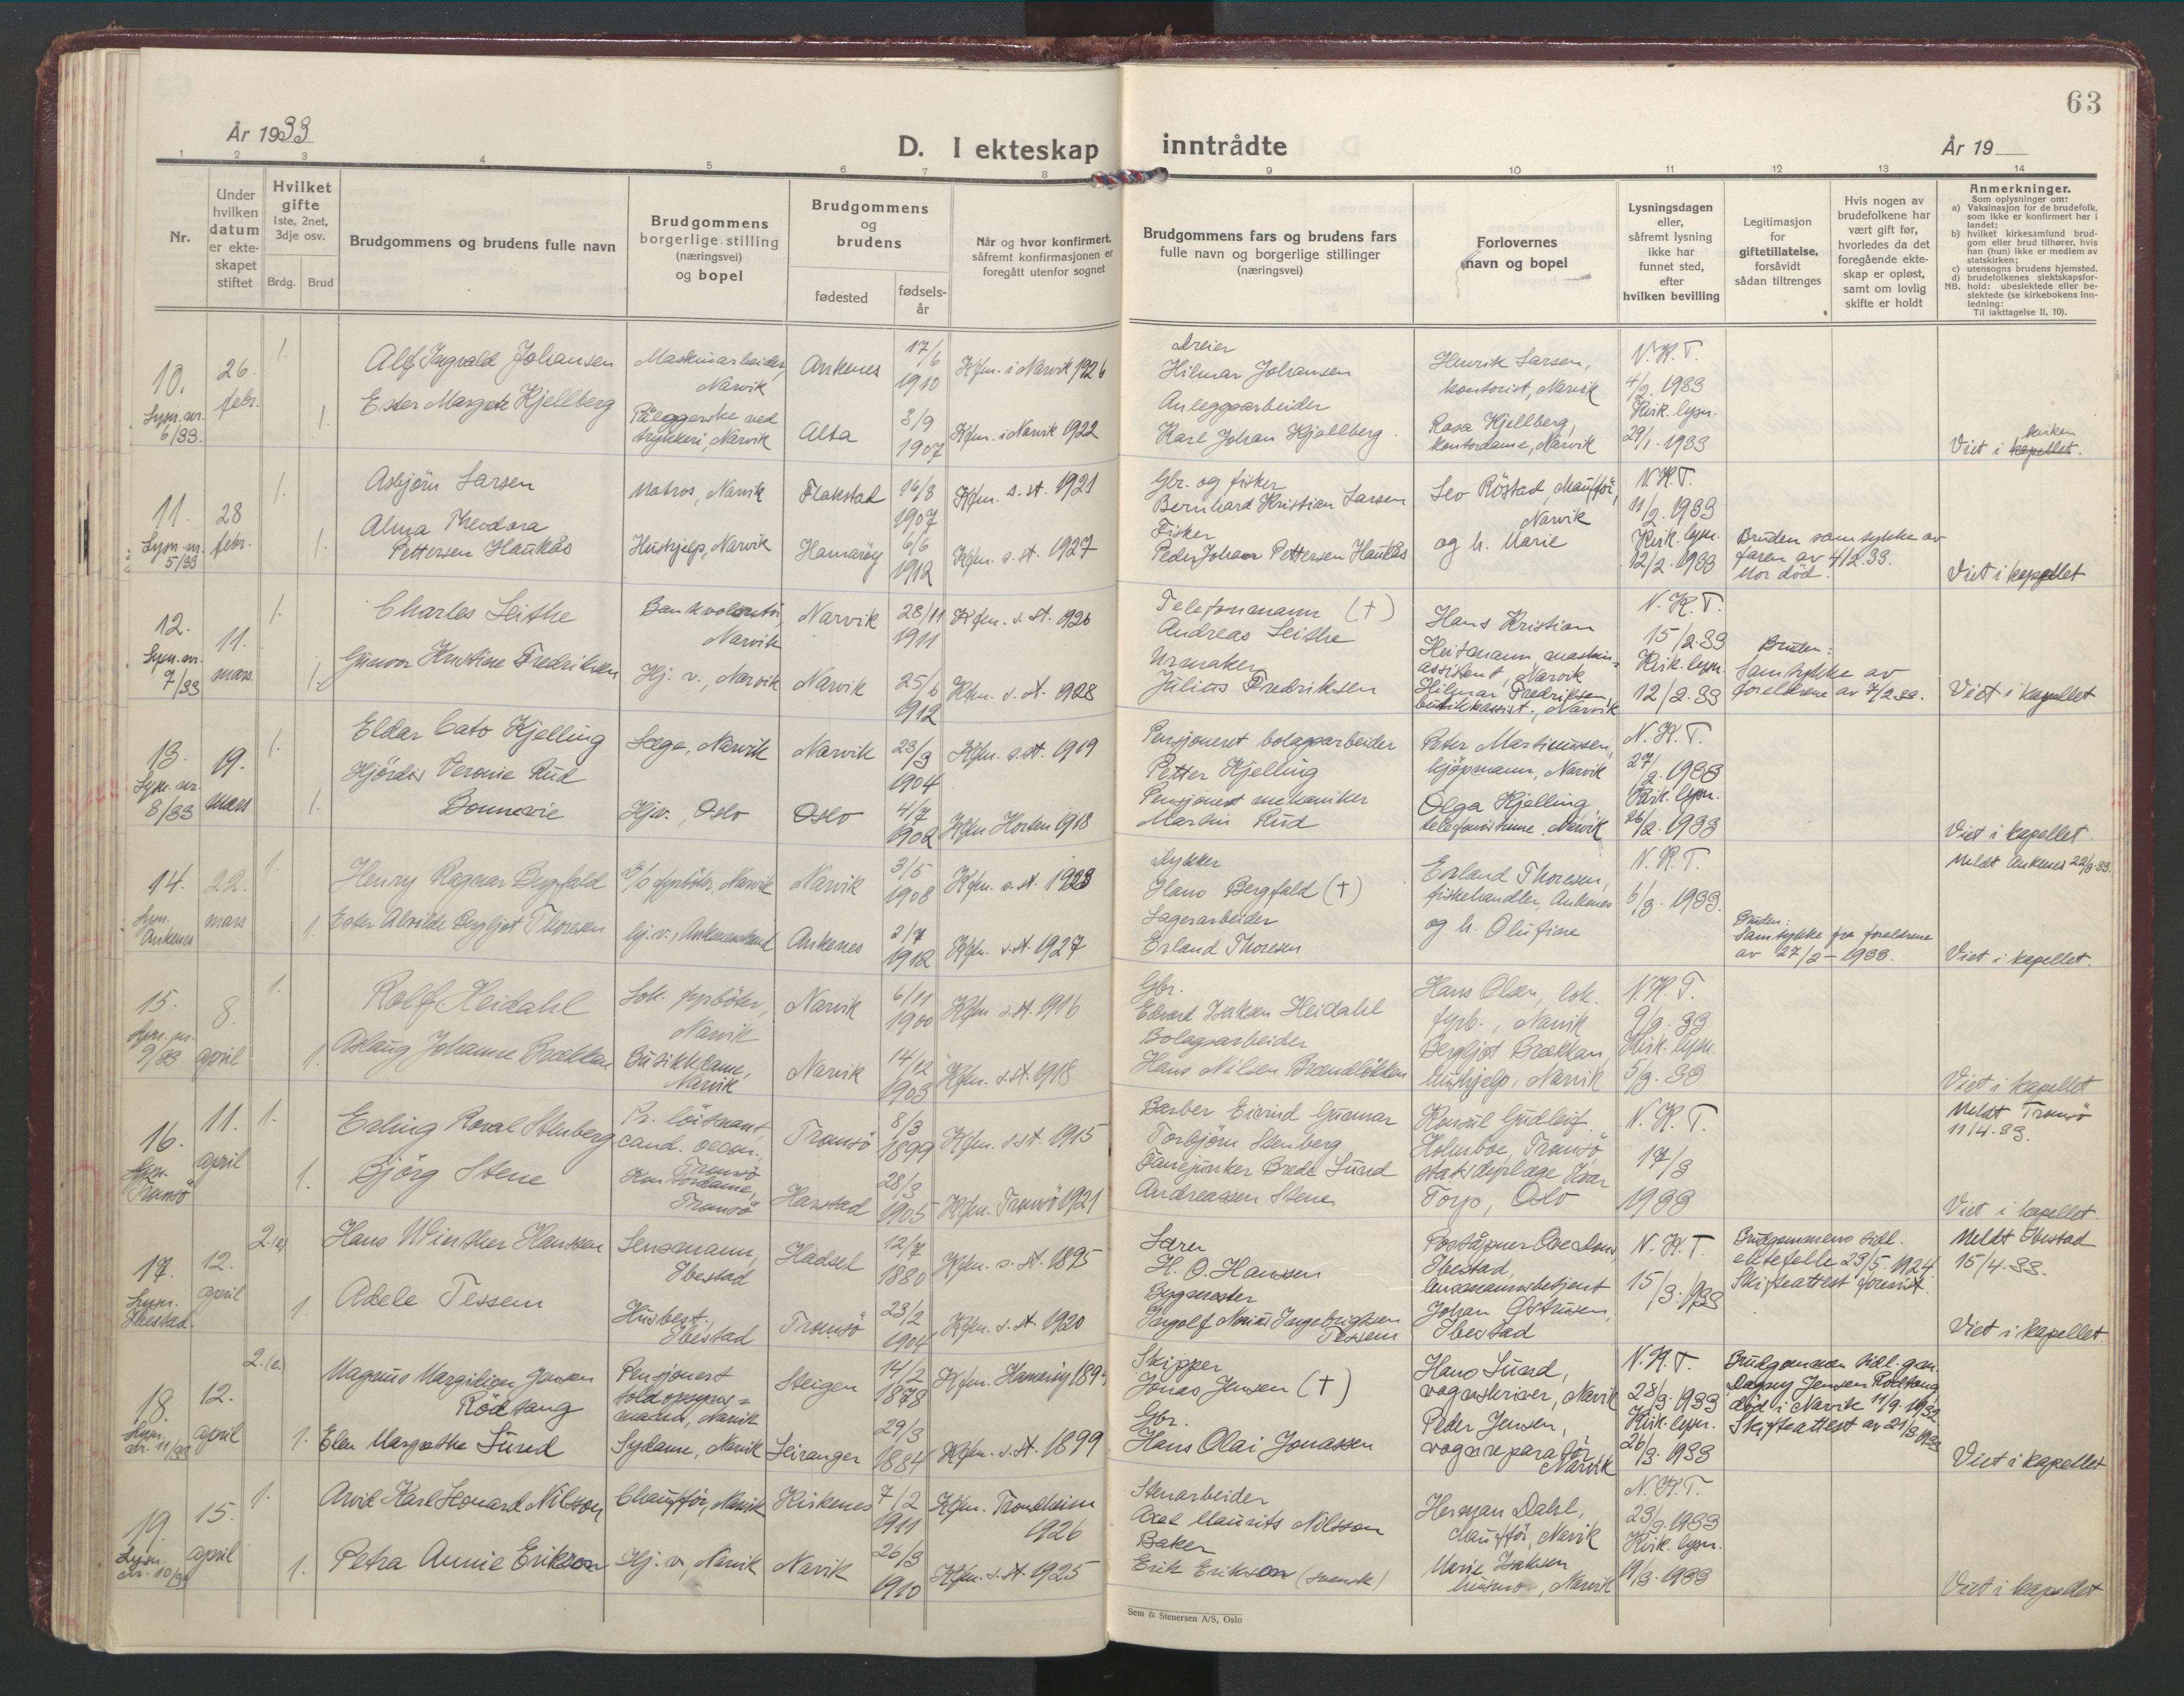 63
År 1933
D. I ekteskap inntrådte
År 19
1 2 3 4 5 6 7 8 9 10 11 12 13 14
Nr.
Under hvilken datum er ekte- skapet stiftet
Hvilket gifte 1ste, 2net, 3dje osv.
Brdg. Brud
Brudgommens og brudens fulle navn
Brudgommens borgerlige stilling (næringsvei) og bopel
Brudgommens og brudens
fødested
fødsels- år
Når og hvor konfirmert, såfremt konfirmasjonen er foregått utenfor sognet
Brudgommens fars og brudens fars fulle navn og borgerlige stillinger (næringsvei)
Forlovernes navn og bopel
Lysningsdagen eller, såfremt lysning ikke har funnet sted, efter hvilken bevilling
Legitimasjon for giftetillatelse, forsåvidt sådan tiltrenges
Hvis nogen av brudefolkene har vært gift før, hvorledes da det foregående ekte- skap er opløst, samt om lovlig skifte er holdt
Anmerkninger.
Som oplysninger om:
a) Vaksinasjon for de brudefolk, som ikke er konfirmert her i landet;
b) hvilket kirkesamfund brud- gom eller brud tilhører, hvis han (hun) ikke er medlem av statskirken;
c) utensogns brudens hjemsted.
d) brudefolkenes slektskapsfor- hold: ubeslektede eller be- slektede (se kirkebokens inn- ledning:
NB.
Til iakttagelse II, 10).
10. Lysn. nr. 6/33.
26. febr.
1.
Alf Ingvald Johansen
Maskinarbeider, Narvik
Ankenes
17/6 1910
Kfm. i Narvik 1926
Dreier
Hilmar Johansen
Henrik Larsen, kontorist, Narvik
N.K.T. 4/2 1933
1.
Ester Margrete Kjellberg
Påleggerske ved trykkeri, Narvik
Alta
3/9 1907
Kfm. i Narvik 1922
Anleggsarbeider
Karl Johan Kjellberg
Rosa Kjellberg, kontordame, Narvik
Kirk. lysn. 29/1. 1933
Viet i kapellet. kirken
11. Lysn. nr. 5/33
28 febr.
1.
Asbjörn Larsen
Matros, Narvik
Flakstad
16/8 1907
Kfm. s. st. 1921
Gbr. og fisker
Bernhard Kristian Larsen
Leo Röstad, chauffør, Narvik
N.K.T. 11/2. 1933
1.
Alma Theodora Pettersen Haukås
Hushjelp, Narvik
Hamaröy
6/6 1912
Kfm. s. st. 1927
Fisker
Peder Johan Pettersen Haukås
og h. Marie
Kirk. lysn. 12/2. 1933
Bruden samtykke av faren av 4/2.33. Mor död.
Viet i kapellet
12. Lysn. nr. 7/33
11. mars
1.
Charles Leithe
Bankvolontör, Narvik
Narvik
28/11 1911
Kfm. s. st. 1926
Telefonmann (†)
Andreas Leithe
Hans Kristian Heitmann maskin- assistent, Narvik
N.K.T. 15/2.33
1.
Gunvor Kristine Fredriksen
Hj. v., Narvik
Narvik
25/6 1912
Kfm. s. st. 1928
Urmaker
Julius Fredriksen
Hilmar Fredriksen, butikkassist., Narvik
Kirk. lysn. 12/2.33
Bruden: Samtykke av foreldrene av 7/2.33.
Viet i kapellet
13. Lysn. nr. 8/33
19. mars
1.
Eldar Cato Kjelling
Læge, Narvik
Narvik
23/3 1904
Kfm. s. st. 1919
Pensjoneret bolagsarbeider
Petter Kjelling
Peter Martinusen, kjöpmann, Narvik
N.K.T. 27/2. 1933
1.
Hjördis Veronie Rud Bonnevie
Hj.v., Oslo
Oslo
4/7 1902
Kfm Horten 1918
Pensjonert mekaniker
Martin Rud
Olga Kjelling, telefonistinne, Narvik
Kirk. lysn. 26/2. 1933
Viet i kapellet.
14. Lysn. Ankenes
22. mars
1.
Henry Ragnar Bergfald
fyrböter, Narvik
Narvik
3/5 1908
Kfm. s. st. 1923
Dykker
Hans Bergfald (†)
Erland Thoresen, fiskehandler, Ankenes
N.K.T. 6/3. 1933.
Meldt Ankenes 22/3.33.
1.
Ester Alvilde Bergljot Thoresen
hj.v., Ankenesstrand
Ankenes
3/7 1912
Kfm. s. st. 1927
Lagerarbeider
Erland Thoresen
og h. Olufine
Bruden: Samtykke fra foreldrene av 27/2 - 1933.
Viet i kapellet.
15. Lysn. nr. 9/33
8. april
1.
Rolf Heidahl
Lok. fyrböter, Narvik
Narvik
6/11 1900
Kfm s. st. 1916
Gbr.
Edvard Isaksen Heidahl
Hans Olsen, lok. fyrb., Narvik
N.K.T. 9/3. 33
1.
Aslaug Johanne Brækkan
Butikkdame, Narvik
Narvik
14/12 1903
Kfm. s. st. 1918
Bolagsarbeider
Hans Nilsen Brændløkken
Bergljot Brækkan, hushjelp, Narvik
Kirk. lysn. 5/3. 33
Viet i kapellet
16. Lysn. Tromsö
11. april
1.
Erling Roval Stenberg
Pr. löitnant, cand. oecon., Tromsö
Tromsö
8/3 1899
Kfm. s. st. 1915
Barber Eivind Gunnar Torbjörn Stenberg
Konsul Gudleif Holmboe, Tromsö
N.K.T. 17/3 1933
Meldt Tromsö 11/4.33.
1.
Björg Stene
Kontordame, Tromsö
Harstad
28/3 1905
Kfm. Tromsö 1921
Fanejunker Brede Lund Andreassen Stene
Ivar Torp, Oslo
Viet i kapellet
17. Lysn. Ibestad.
12. april
2.(e)
Hans Winther Hanssen
Lensmann, Ibestad
Hadsel
12/7 1880
Kfm. s. st. 1895
Lærer
H. O. Hanssen
Poståpner Ibestad,
N.K.T. 15/3. 1933
Brudgommens tidl. ektefelle 23/5. 1924 Skifteattest forevist.
Meldt Ibestad 15/4.33.
1.
Adele Tessem
Husbest. Ibestad
Tromsö
23/2 1904
Kfm. s. st. 1920
Bygmester
Ingolf Ingebrigtsen Tessem
lensmannsbetjent Johan Ibestad
Viet i kapellet.
18. Lysn. nr. 11/33
12. april
2.(e)
Magnus Jensen Rödsang
Pensjonert toldopsyns- mann, Narvik
Steigen
14/2 1878
Kfm. Hamaröy
Skipper
Jonas Jensen (†)
Hans Lund, vognskriver, Narvik
N.K.T. 28/3. 1933
Brudgommen tidl. g. m. Dagny Jensen Rödsang död i Narvik 11/9. 1932 Skifteattest av 21/3 1933
1.
Elen Margrethe Lund
Sydame, Narvik
Leiranger
29/3 1884
Kfm. s. st. 1899
Gbr.
Hans Olai Jonassen
Peder Jensen, vognreparatör Narvik
Kirk. lysn. 26/3. 1933
Viet i kapellet
19. Lysn. nr. 10/33
15. april
1.
Arvid Karl Leonard Nilsson
Chaufför, Narvik
Kirkenes
7/2 1911
Kfm. Trondheim 1926
Stenarbeider
Axel Maurits Nilsson
Herman Dahl, chaufför, Narvik
N.K.T. 23/3. 1933
1.
Petra Annie Erikson
Hj. v., Narvik
Narvik
26/3 1910
Kfm. s. st. 1925
Baker
Erik Erikson (svensk)
Marie Isaksen husmor, Narvik
Kirk. lysn. 19/3. 1933
Viet i kapellet
Sem & Stenersen A/S, Oslo